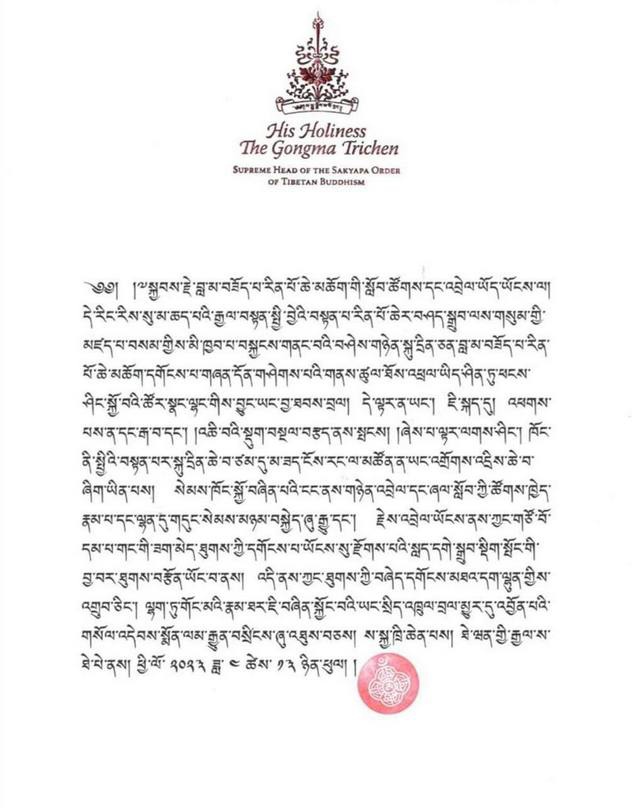 His Holiness
The Gongma Trichen
SUPREME HEAD OF THE SAKYAPA ORDER
OF TIBETAN BUDDHISM
༄༅། །༧སྐྱབས་རྗེ་བླ་མ་བཟོད་པ་རིན་པོ་ཆེ་མཆོག་གི་སློབ་ཚོགས་དང་འབྲེལ་ཡོད་ཡོངས་ལ།
དེ་རིང་རིས་སུ་མ་ཆད་པའི་རྒྱལ་བསྟན་སྤྱི་བྱེའི་བསྟན་པ་རིན་པོ་ཆེར་བཤད་སྒྲུབ་ལས་གསུམ་གྱི་
མཛད་པ་བསམ་གྱིས་མི་ཁྱབ་པ་བསྐྱངས་གནང་བའི་བཤེས་གཉེན་སྐུ་དྲིན་ཅན་བླ་མ་བཟོད་པ་རིན་
པོ་ཆེ་མཆོག་དགོངས་པ་གཞན་དོན་གཤེགས་པའི་གནས་ཚུལ་ཐོས་འཕྲལ་ཡིད་ཤིན་ཏུ་ཕངས་
ཤིང་སྐྱོ་བའི་ཚོར་སྣང་ལྷང་གིས་བྱུང་ཡང་བྱ་ཐབས་བྲལ། དེ་ལྟར་ན་ཡང་། ཇི་སྐད་དུ། འཕགས་
པས་ན་དང་རྒ་བ་དང་། །འཆི་བའི་སྡུག་བསྔལ་བརྩད་ནས་སྤངས། །ཞེས་པ་ལྟར་ལགས་ཤིང་། ཁོང་
ནི་སྤྱིའི་བསྟན་པར་སྐུ་དྲིན་ཆེ་བ་ཙམ་དུ་མ་ཟད་ངོས་རང་ལ་མཚོན་ན་ཡང་འགྲོགས་འདྲིས་ཆེ་བ་
ཞིག་ཡིན་པས། སེམས་ཁོང་སྐྱོ་བཞིན་པའི་ངང་ནས་གཉེན་འབྲེལ་དང་ཞལ་སློབ་ཀྱི་ཚོགས་ཁྱེད་
རྣམ་པ་དང་ལྷན་དུ་གདུང་སེམས་མཉམ་བསྐྱེད་ཞུ་རྒྱུ་དང་། རྗེས་འབྲེལ་ཡོངས་ནས་ཀྱང་གཙོ་བོ་
དམ་པ་གང་གི་ཟག་མེད་ཐུགས་ཀྱི་དགོངས་པ་ཡོངས་སུ་རྫོགས་པའི་སླད་དགེ་སྒྲུབ་སྡིག་སྤོང་གི་
བྱ་བར་ཐུགས་བརྩོན་ཡོང་བ་ནས། འདི་ནས་ཀྱང་ཐུགས་ཀྱི་བཞེད་དགོངས་མཐའ་དག་ལྷུན་གྱིས་
འགྲུབ་ཅིང་། ལྷག་ཏུ་གོང་མའི་རྣམ་ཐར་ཇི་བཞིན་སྐྱོང་བའི་ཡང་སྲིད་འཁྲུལ་བྲལ་མྱུར་དུ་འབྱོན་པའི་
གསོལ་འདེབས་སྨོན་ལམ་རྒྱུན་བསྲིངས་ཞུ་འཐུས་བཅས། ས་སྐྱ་ཁྲི་ཆེན་པས། ཐེ་ཝན་གྱི་རྒྱལ་ས་
ཐེ་པེ་ནས། ཕྱི་ལོ་ ༢༠༢༣ ཟླ་ ༤ ཚེས་ ༡༣ ཉིན་ཕུལ། །